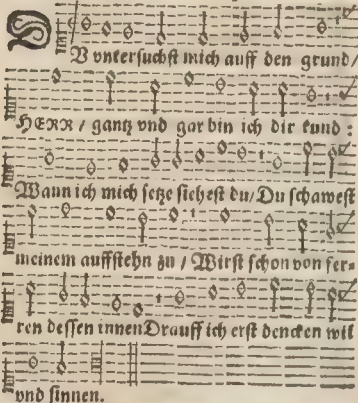 DV vntersuchst mich auff den grund/
HERR / gantz vnd gar bin ich dir kund :
Wann ich mich setze siehest du/Du schawest
meinem auffstehn zu / Wirst schon von fern
ren dessen innen Drauff ich erst dencken wil
vnd sinnen.